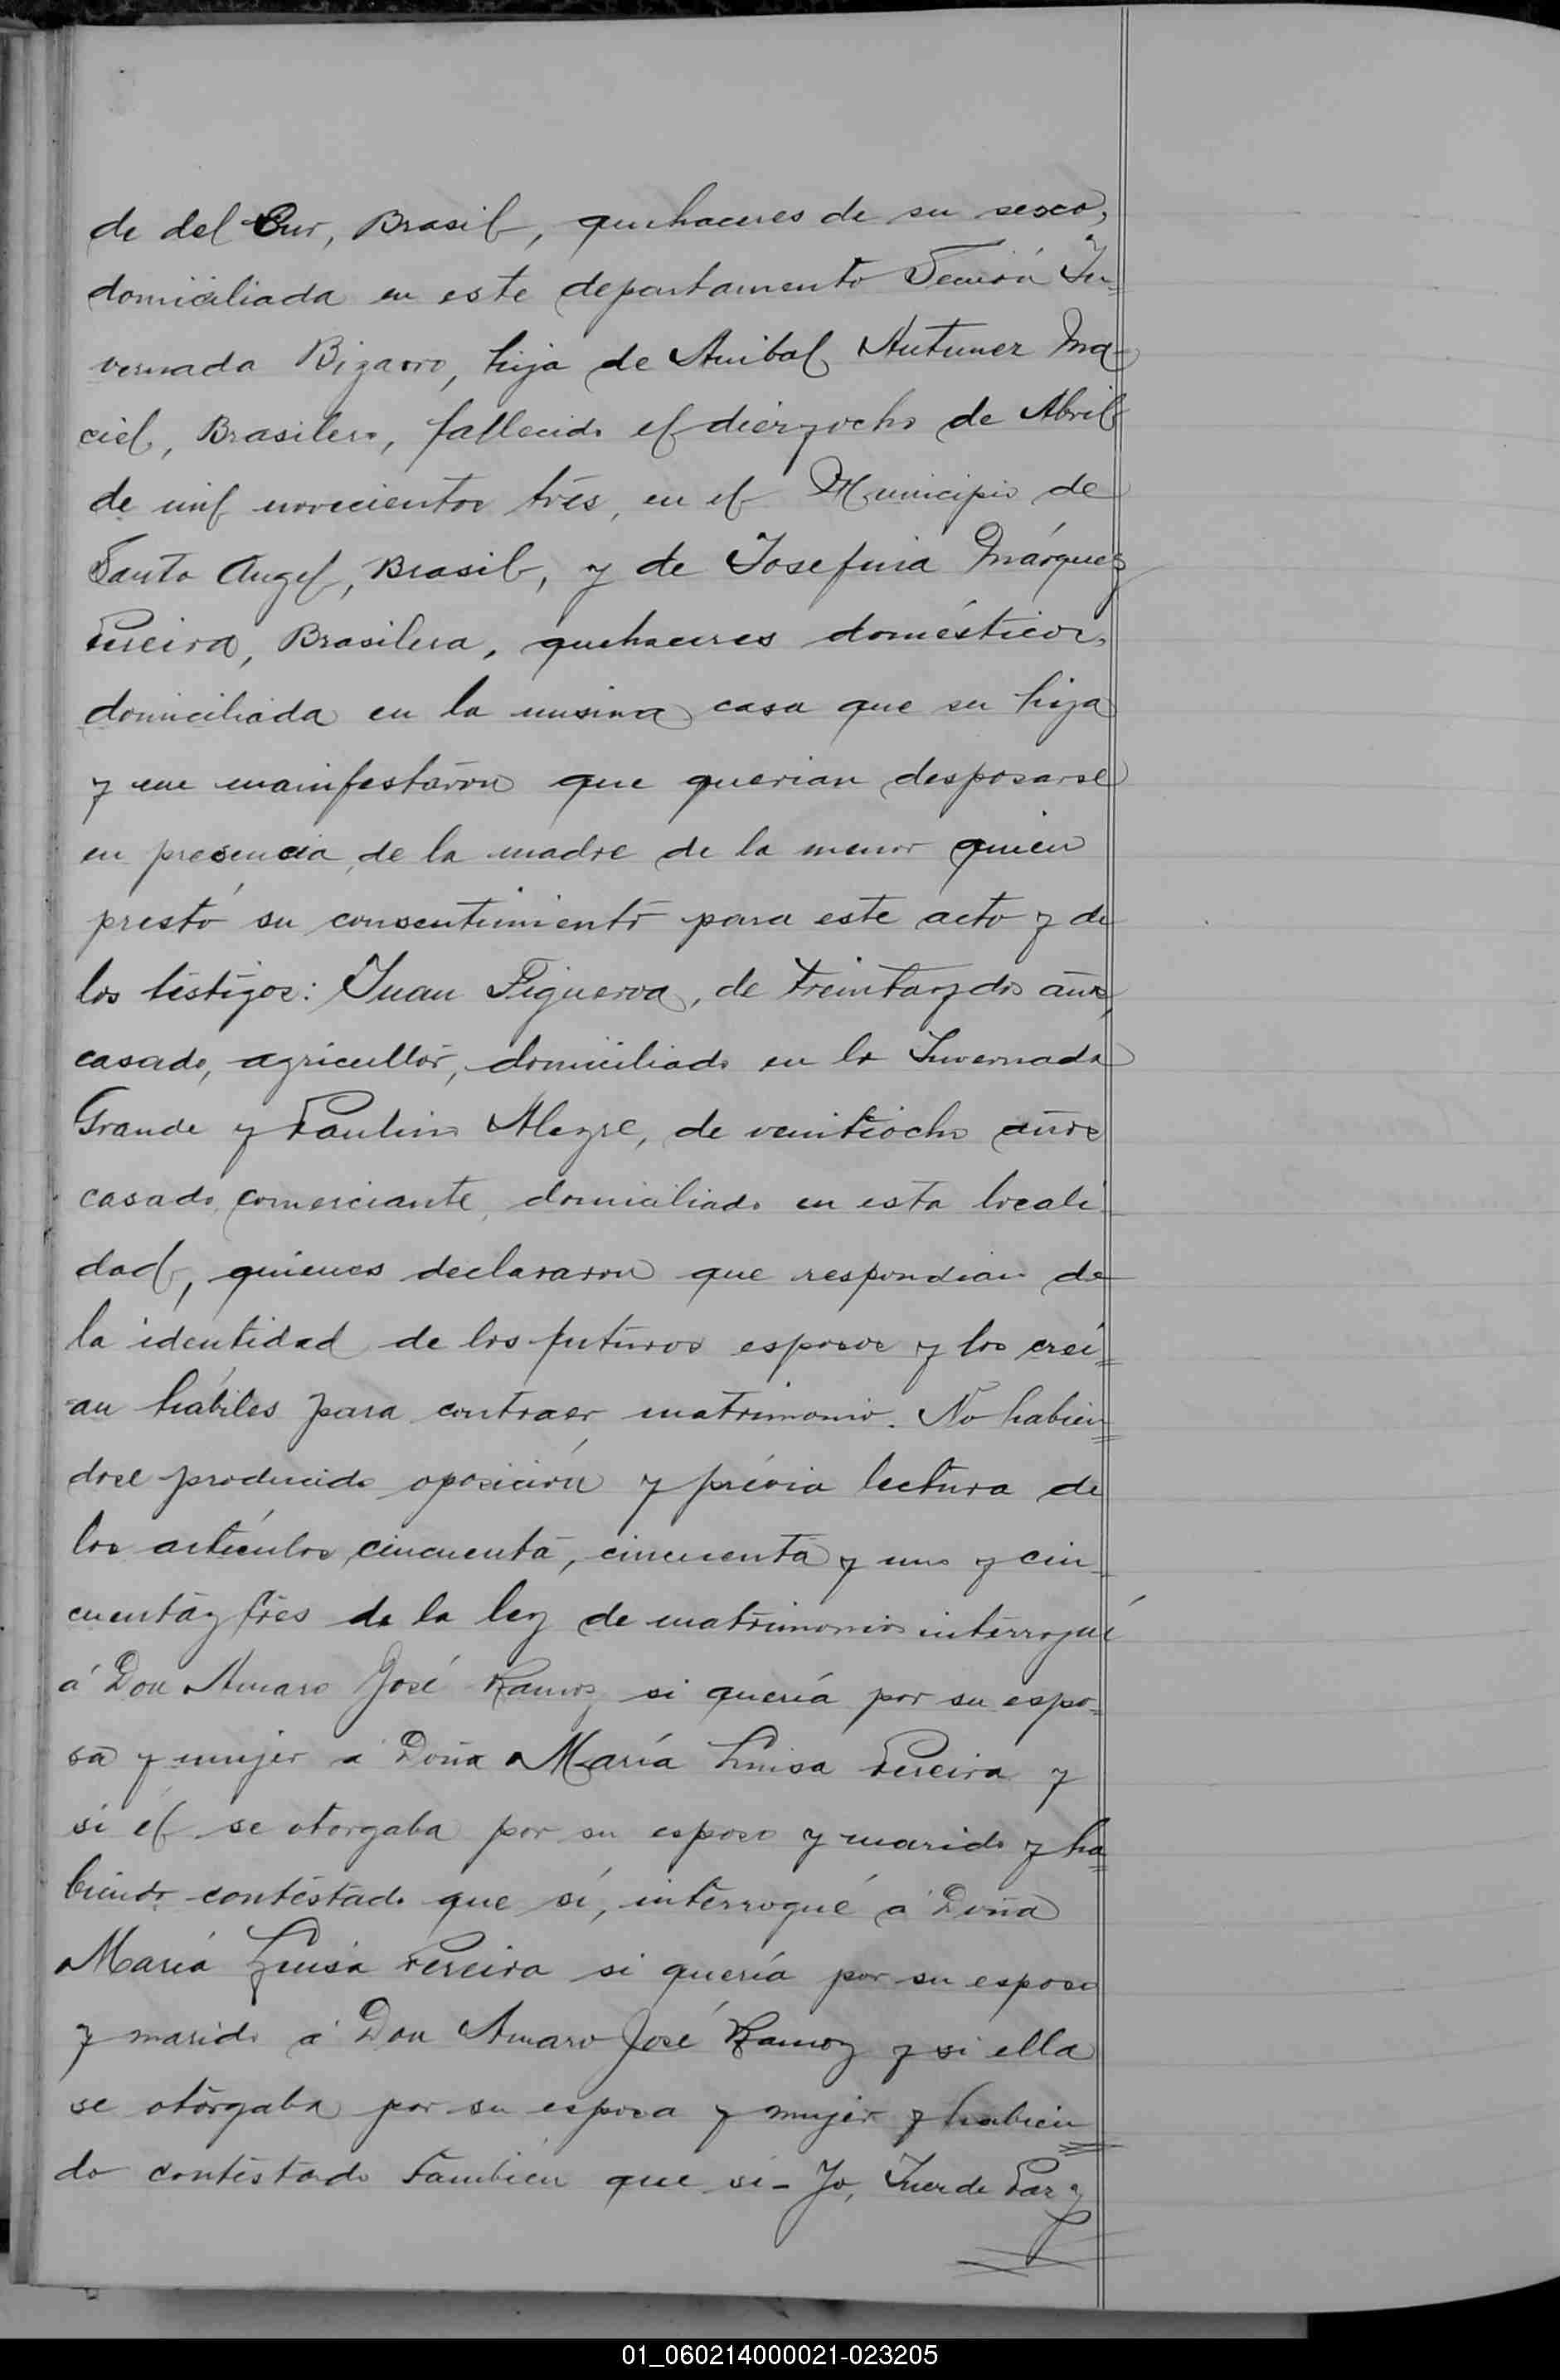 de del Sur, Brasil, quehaceres de su sexo,
domiciliada en este departamento Sección In-
vernada Bizarro, hija de Anibal Antunez Ma-
ciel, Brasilero, fallecido el diezyocho de Abril
de mil novecientos tres, en el Municipio de
Santo Angel, Brasil, y de Josefina Márquez
Pereira, Brasilera, quehaceres domésticos,
domiciliada en la misma casa que su hija
y me manifestaron que querian desposarse
en presencia de la madre de la menor quien
prestó su consentimiento para este acto y de
los testigos: Juan Figueroa, de treintaydos años,
casado, agricultor, domiciliado en la Invernada
Grande y Paulino Alegre, de veintiocho años
casado, comerciante, domiciliado en esta locali
dad, quienes declararon que respondian de
la identidad de los futuros esposos y los creí-
an hábiles para contraer matrimonio. No habien-
dose producido oposición y prévia lectura de
los artículos cincuenta, cincuenta y uno y cin-
cuentay tres de la ley de matrimonio interrogué
á Don Amaro José Ramoz si quería por su espo-
sa y mujer á Doña María Luisa Pereira y
si él se otorgaba por su esposo y marido y ha-
biendo contestado que sí, interrogué á Doña
María Luisa Pereira si quería por su esposo
y marido á Don Amaro José Ramoz y si ella
se otorgaba por su esposa y mujer y habien-
do contestado también que si- Yo, Juez de Paz y
01_060214000021-023205